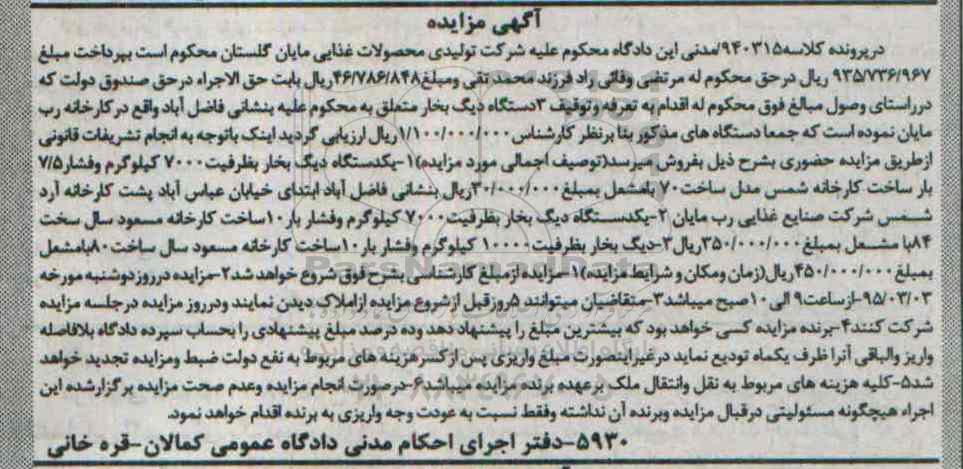 آگهی مزایده
درپرونده کلاسه۹۴۰۳۱۵/مدنی این دادگاه محکوم علیه شرکت تولیدی محصولات غذایی مایان گلستان محکوم است بپرداخت مبلغ
۹۳۵/۷۳۶/۹۶۷ ریال درحق محکوم له مرتضی وفائی راد فرزند محمد تقی ومبلغ۴۶/۷۸۶/۸۴۸ریال بابت حق الاجراء درحق صندوق دولت که
درراستای وصول مبالغ فوق محکوم له اقدام به تعرفه وتوقیف ۳دستگاه دیگ بخار متعلق به محکوم علیه بنشانی فاضل آباد واقع درکارخانه رب
مایان نموده است که جمعا دستگاه های مذکور بنا برنظر کارشناس ۱/۱۰۰/۰۰۰/۰۰۰ریال ارزیابی گردید اینک باتوجه به انجام تشریفات قانونی
ازطریق مزایده حضوری بشرح ذیل بفروش میرسد(توصیف اجمالی مورد مزایده)۱-یکدستگاه دیگ بخار بظرفیت ۷۰۰۰ کیلوگرم وفشار۷/۵
بار ساخت کارخانه شمس مدل ساخت۷۰ بامشعل بمبلغ۳۰۰/۰۰۰/۰۰۰ریال بنشانی فاضل آباد ابتدای خیابان عباس آباد پشت کارخانه آرد
شمس شرکت صنایع غذایی رب مایان ۲-یکدستگاه دیگ بخار بظرفیت۷۰۰۰ کیلوگرم وفشار بار۱۰ساخت کارخانه مسعود سال سخت
۸۴با مشعل بمبلغ۳۵۰/۰۰۰/۰۰۰ریال۳-دیگ بخار بظرفیت۱۰۰۰۰ کیلوگرم وفشار بار۱۰ساخت کارخانه مسعود سال ساخت۸۰بامشعل
بمبلغ۴۵۰/۰۰۰/۰۰۰ریال(زمان ومکان و شرایط مزایده)۱-مزایده ازمبلغ کارشناسی بشرح فوق شروع خواهد شد۲-مزایده درروزدوشنبه مورخه
۹۵/۰۳/۰۳-ازساعت۹ الی ۱۰صبح میباشد۳-متقاضیان میتوانند ۵روزقبل ازشروع مزایده ازاملاک دیدن نمایند ودرروز مزایده درجلسه مزایده
شرکت کنند۴-برنده مزایده کسی خواهد بود که بیشترین مبلغ را پیشنهاد دهد وده درصد مبلغ پیشنهادی را بحساب سپرده دادگاه بلافاصله
واریز والباقی آنرا ظرف یکماه تودیع نماید درغیراینصورت مبلغ واریزی پس ازکسرهزینه های مربوط به نفع دولت ضبط ومزایده تجدید خواهد
شد۵-کلیه هزینه های مربوط به نقل وانتقال ملک برعهده برنده مزایده میباشد۶-درصورت انجام مزایده وعدم صحت مزایده برگزارشده این
اجراء هیچگونه مسئولیتی درقبال مزایده وبرنده آن نداشته وفقط نسبت به عودت وجه واریزی به برنده اقدام خواهد نمود.
۵۹۳۰-دفتر اجرای احکام مدنی دادگاه عمومی کمالان-قره خانی